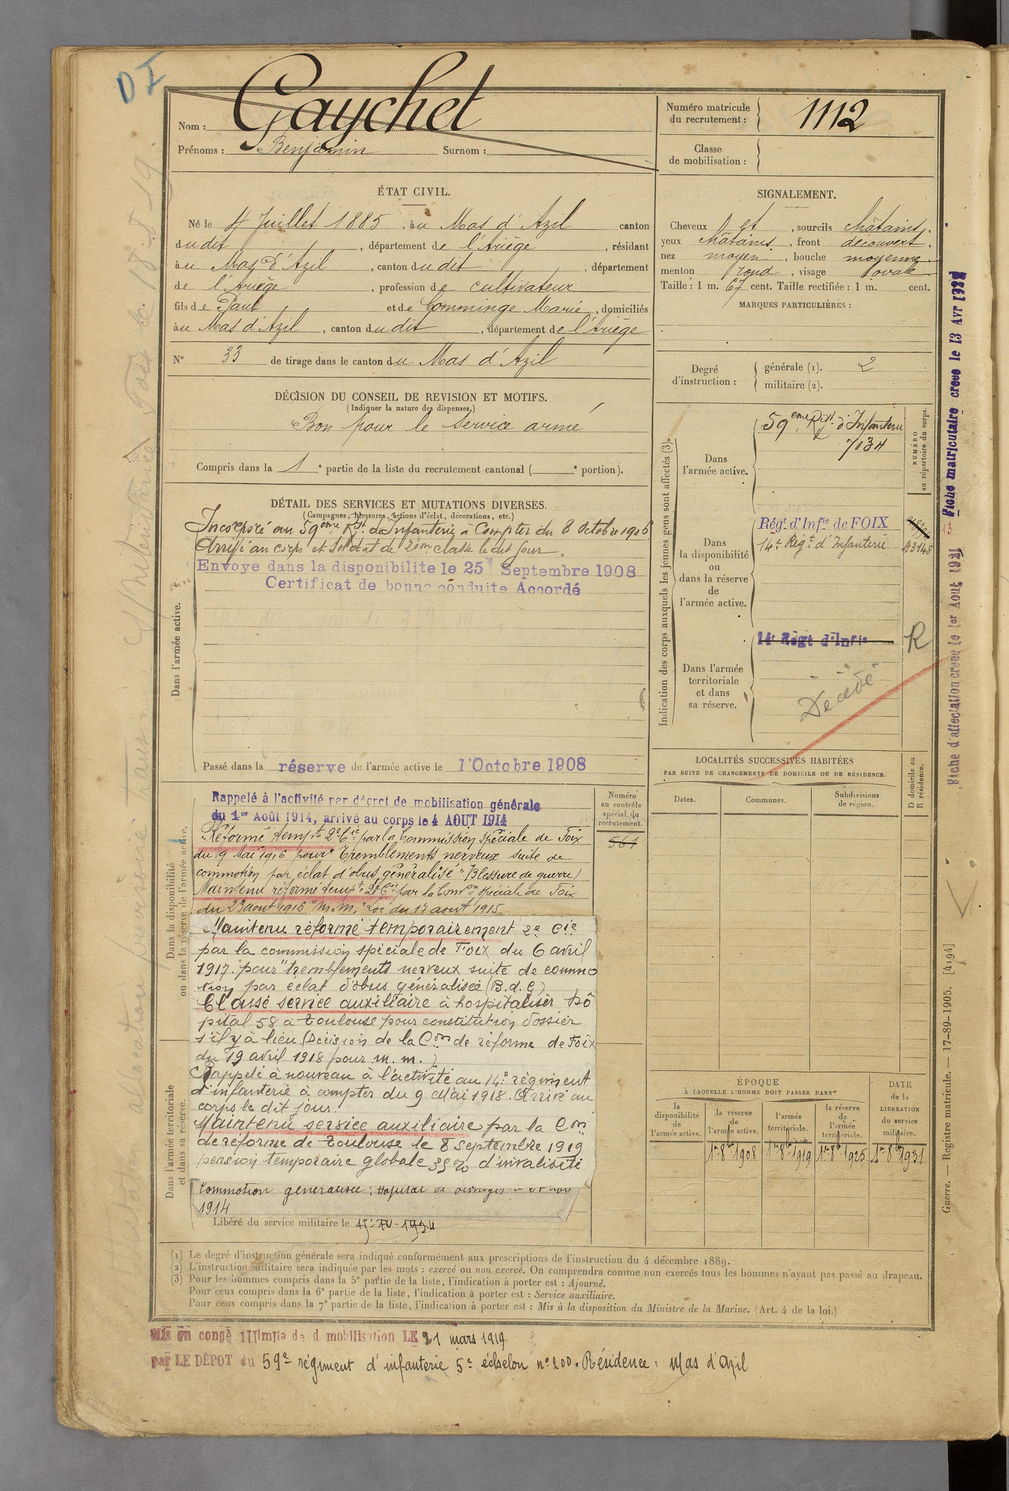 DI
Nom : Gaychet
Prénoms : Benjamin Surnom :
Numéro matricule
du recrutement : 1112
Classe
de mobilisation :
ÉTAT CIVIL.
Né le 4 Juillet 1885, au Mas d'Azil canton
dudit, département de l'Ariège, résidant
au Mas d'Azil, canton dudit, département
de l'Ariège, profession de cultivateur
fils de Paul et de Comminge Marie, domiciliés
au Mas d'Azil, canton dudit, département de l'Ariège
N° 33 de tirage dans le canton du Mas d'Azil
SIGNALEMENT.
Cheveux et, sourcils châtains,
yeux châtains, front découvert,
nez moyen, bouche moyenne
menton rond, visage ovale
Taille : 1 m. 67 cent. Taille rectifiée : 1 m. cent.
MARQUES PARTICULIÈRES :
DÉCISION DU CONSEIL DE REVISION ET MOTIFS.
(Indiquer la nature des dispenses.)
Bon pour le service armé
Compris dans la 1 partie de la liste du recrutement cantonal ( portion).
Degré
d'instruction :
générale (1). 2
militaire (2).
DÉTAIL DES SERVICES ET MUTATIONS DIVERSES.
(Campagnes, blessures, actions d'éclat, décorations, etc.)
Dans l'armée active.
Incorporé au 59ème Rgt d'Infanterie à compter du 8 Octobre 1906
Arrivé au corps et soldat de 2ème classe le dit jour.
Envoyé dans la disponibilité le 25 Septembre 1908
Certificat de bonne conduite Accordé
Passé dans la réserve de l'armée active le 1 Octobre 1908
Indication des corps auxquels les jeunes gens sont affectés (3).
Dans
l'armée active.
59ème Rgt d'Infanterie
7134
NUMÉRO
au répertoire du corps.
Dans
la disponibilité
ou
dans la réserve
de
l'armée active.
Régt d'Infie de FOIX
14e Régt d'Infanterie
Dans l'armée
territoriale
et dans
sa réserve.
14e Régt d'Infie
R
Décédé
LOCALITÉS SUCCESSIVES HABITÉES
PAR SUITE DE CHANGEMENTS DE DOMICILE OU DE RÉSIDENCE.
Dates. Communes. Subdivisions
de région.
D domicile ou
R résidence.
Dans la disponibilité
ou dans la réserve de l'armée active.
Numéro
au contrôle
spécial du
recrutement.
561
Rappelé à l'activité par décret de mobilisation générale
du 1er Août 1914, arrivé au corps le 4 AOUT 1914
Réformé tempre 2e Cie par la Commission Spéciale de Foix
du 9 Mai 1916 pour "Tremblements nerveux suite de
commotion par éclat d'obus, généralisé" (Blessure de guerre)
Maintenu réformé tempre 2e Cie par la Comon spéciale de Foix
du 23 aout 1916 "m.m." Loi du 17 aout 1915.
Maintenu réformé temporairement 2e Cie
par la commission spéciale de Foix du 6 avril
1917. pour "tremblements nerveux suite de commo
tion par éclat d'obus généralisée (B.d.G)
Classé service auxiliaire à hospitaliser hô
pital 58 à Toulouse pour constitution dossier
s'il y a lieu (Décision de la Con de réforme de Foix
du 19 avril 1918 pour m.m.)
Rappelé à nouveau à l'activité au 14e régiment
d'infanterie à compter du 9 Mai 1918. Arrivé au
corps le dit jour.
Maintenu service auxiliaire par la Con
de réforme de Toulouse le 8 septembre 1919
pension temporaire globale 35% d'invalidité
Commotion généralisée ;
1914
Dans l'armée territoriale
et dans sa réserve.
Libéré du service militaire le
ÉPOQUE
À LAQUELLE L'HOMME DOIT PASSER DANS
la
disponibilité
de
l'armée active.
la réserve
de
l'armée active.
l'armée
territoriale.
la réserve
de
l'armée
territoriale.
DATE
de la
LIBÉRATION
du service
militaire.
1er 8bre 1908 1er 8bre 1919 1er 8bre 1925 1er 8bre 1931
(1) Le degré d'instruction générale sera indiqué conformément aux prescriptions de l'instruction du 4 décembre 1889.
(2) L'instruction militaire sera indiquée par les mots : exercé ou non exercé. On comprendra comme non exercés tous les hommes n'ayant pas passé au drapeau.
(3) Pour les hommes compris dans la 5e partie de la liste, l'indication à porter est : Ajourné.
Pour ceux compris dans la 6e partie de la liste, l'indication à porter est : Service auxiliaire.
Pour ceux compris dans la 7e partie de la liste, l'indication à porter est : Mis à la disposition du Ministre de la Marine. (Art. 4 de la loi.)
Mis en congé illimité de démobilisation LE 21 mars 1919
par LE DÉPOT du 59e régiment d'infanterie 5e échelon n° 200. Résidence : Mas d'Azil
Fiche d'affectation créée le 1er Aout 1921
Fiche matriculaire créée le 13 Avr
Guerre. — Registre matricule. — 17-89-1905. [4194]